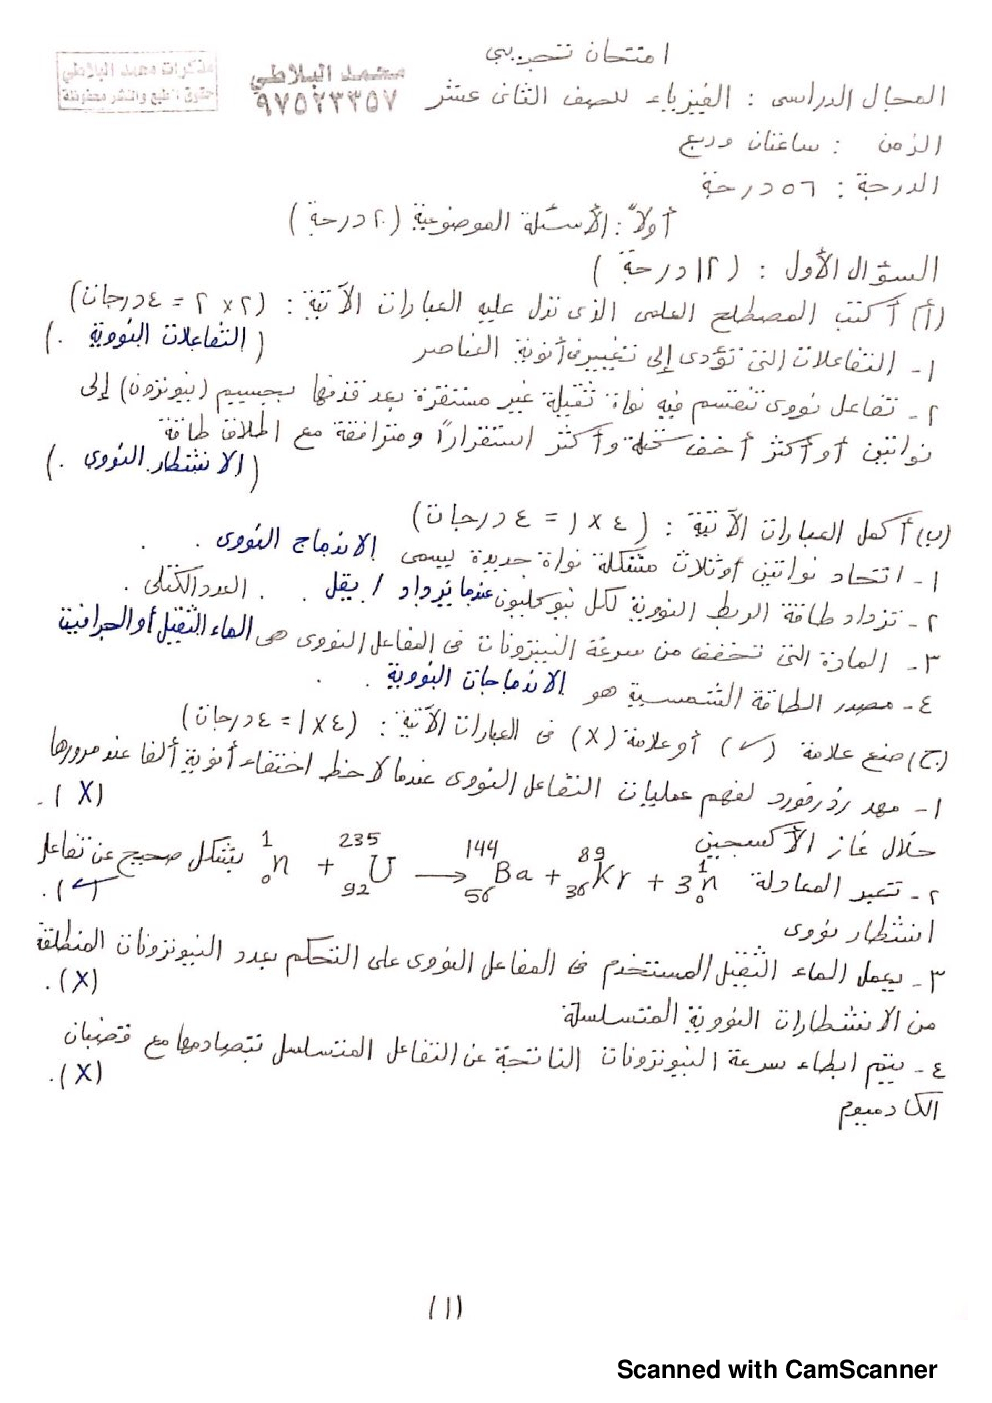 امتحان تجريبى
مذكرات محمد البلاطي
حقوق الطبع والنشر محفوظة
محمد البلاطي
٩٧٥٢٣٣٥٧
المجال الدراسى : الفيزياء للصف الثانى عشر
الزمن : ساعتان وربع
الدرجة : ٥٦ درجة
أولاً : الأسئلة الموضوعية (٢٠ درجة)
السؤال الأول : (١٢ درجة)
(أ) أكتب المصطلح العلمى الذى تدل عليه العبارات الآتية : (٢ × ٢ = ٤ درجات)
١- التفاعلات التى تؤدى إلى تغيير فى أنوية العناصر (التفاعلات النووية .)
٢- تفاعل نووى تنقسم فيه نواة ثقيلة غير مستقرة بعد قذفها بجسيم (نيوترون) إلى
نواتين أو أكثر أخف كتلة وأكثر استقراراً ومترافقة مع اطلاق طاقة
(الانشطار النووى .)
(ب) أكمل العبارات الآتية : (٤ × ١ = ٤ درجات)
١- اتحاد نواتين أو ثلاث مشكلة نواة جديدة يسمى الاندماج النووى .
٢- تزداد طاقة الربط النووية لكل نيوكليون عندما يزداد / يقل . . العدد الكتلى .
٣- المادة التى تخفف من سرعة النيترونات فى المفاعل النووى هى الماء الثقيل أو الجرافيت
٤- مصدر الطاقة الشمسية هو الاندماجات النووية . .
(ج) ضع علامة (✓) أو علامة (X) فى العبارات الآتية : (٤ × ١ = ٤ درجات)
١- مهد رذرفورد لفهم عمليات التفاعل النووى عندما لاحظ اختفاء أنوية ألفا عند مرورها
خلال غاز الأكسجين (X) .
٢- تعبر المعادلة ¹₀n + ²³⁵₉₂U → ¹⁴⁴₅₆Ba + ⁸⁹₃₆Kr + 3¹₀n بشكل صحيح عن تفاعل
انشطار نووى (✓) .
٣- يعمل الماء الثقيل المستخدم فى المفاعل النووى على التحكم بعدد النيوترونات المنطلقة
من الانشطارات النووية المتسلسلة (X) .
٤- يتم ابطاء سرعة النيوترونات الناتجة عن التفاعل المتسلسل بتصادمها مع قضبان
الكادميوم (X) .
(١)
Scanned with CamScanner